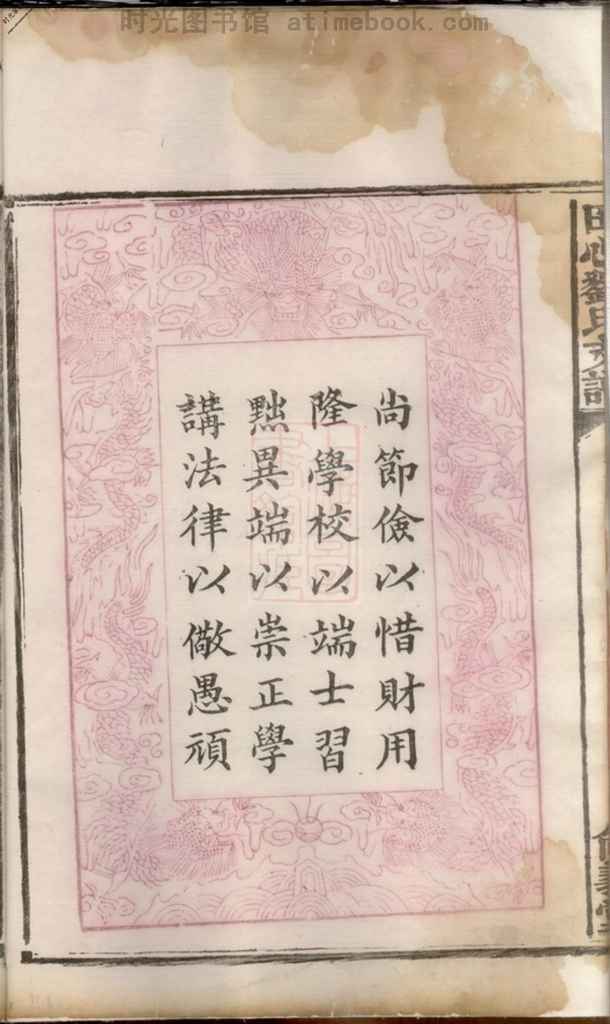 时光图书馆 atimebook.com
田心劉氏支譜
尚節儉以惜財用
隆學校以端士習
黜異端以崇正學
講法律以儆愚頑